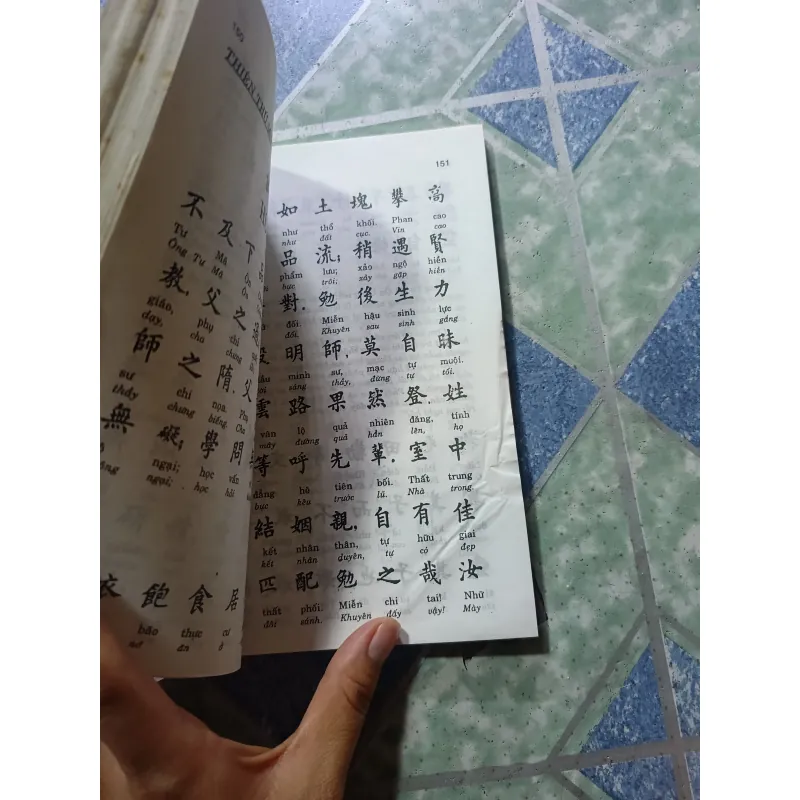 150
THIÊN
不及下
Tư Mã
Ông Tư Mã
教,父之過
giáo, phụ chi
dạy, cha chưng
師之隋.父
sư chi nọa. Phụ
thầy chưng biếng. Cha
無礙;學問
ngại; học vấn
ngại; học hỏi
衣飽食居
bão thực cư
151
如土塊攀高
như thổ khối. Phan cao
như đất cục. Vin cao
品流;稍遇賢
phẩm lưu; xảo ngộ hiền
bực trôi; xảy gặp hiền
對.勉後生力
đối. Miễn hậu sinh lực
đối. Khuyên sau sinh gắng
明師,莫自昧
minh sư, mạc tự muội.
sáng thầy, đừng tự tối.
雲路果然登.姓
vân lộ quả nhiên đăng, tính
mây đường quả hẳn lên, họ
等呼先輩.室中
đẳng hô tiên bối. Thất trung
bục kêu trước lũ. Nhà trong.
結姻親,自有佳
kết nhân thân, tự hữu giai
kết nhân duyên, tự có đẹp
匹配勉之哉汝
thất phối. Miễn chi tai! Nhữ
đôi sánh. Khuyên đấy vậy! Mày